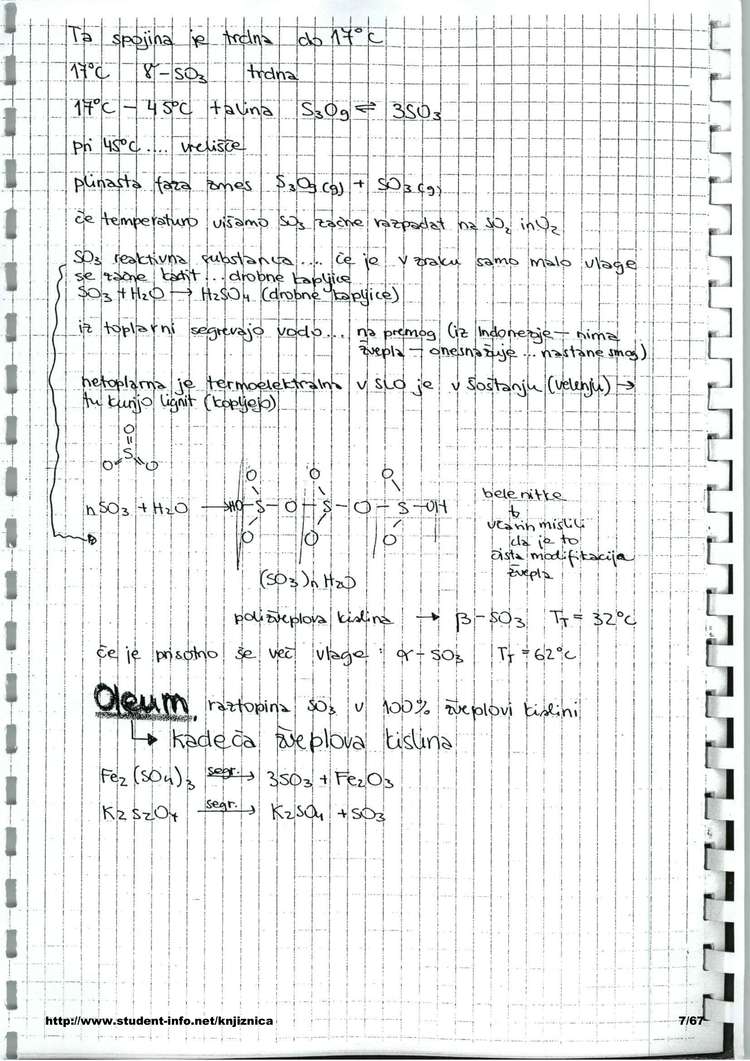 Ta spojina je trdna do 17°C
17°C γ-SO3 trdna
17°C - 45°C talina S3O9 ⇌ 3SO3
pri 45°C .... vrelišče
plinasta faza zmes S3O9(g) + SO3(g)
če temperaturo višamo SO3 začne razpadat na SO2 in O2
SO3 reaktivna substanca .... če je v zraku samo malo vlage
se začne kadit ... drobne kapljice
SO3 + H2O → H2SO4 (drobne kapljice)
iz toplarni segrevajo vodo ... na premog (iz Indonezije - nima
žvepla - onesnažuje ... nastane smog)
netoplarna je termoelektralna v SLO je v šoštanju (velenju) →
tu kurijo lignit (kopljejo)
O
S
O O
O O O
nSO3 + H2O → HO-S-O-S-O-S-OH
O O O
(SO3)n H2O
belenitke
včasih mislili
da je to
čista modifikacija
žvepla
poližveplova kislina → β-SO3 TT = 32°C
če je prisotno še več vlage : α-SO3 TT = 62°C
Oleum, raztopina SO3 v 100% žveplovi kislini
↳ kadeča žveplova kislina
Fe2(SO4)3 segr.→ 3SO3 + Fe2O3
K2S2O7 segr.→ K2SO4 + SO3
http://www.student-info.net/knjiznica
7/67